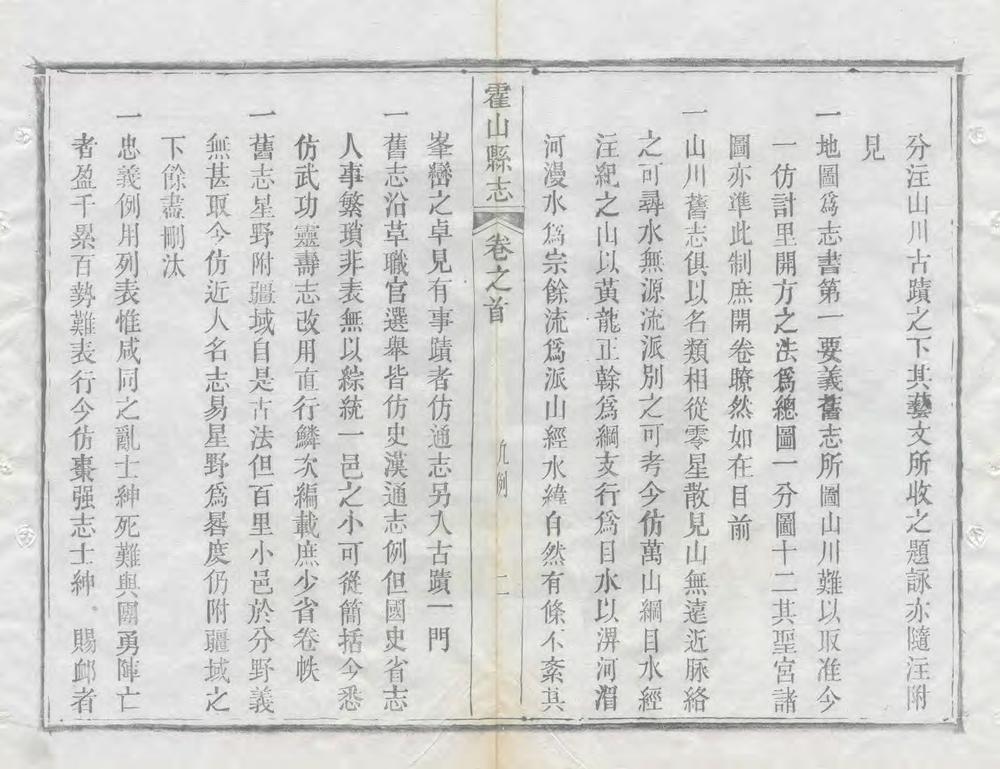 分注山川古蹟之下其藝文所收之題詠亦隨注附
見
一地圖爲志書第一要義舊志所圖山川難以取准今
一仿計里開方之法爲總圖一分圖十二其聖宮諸
圖亦準此制庶開卷瞭然如在目前
一山川舊志俱以名類相從零星散見山無遠近脉絡
之可尋水無源流派別之可考今仿萬山綱目水經
注紀之山以黃龍正幹爲綱支行爲目水以淠河淠
河漫水爲宗餘流爲派山經水緯自然有條不紊其
霍山縣志 卷之首 凡例 二
峯巒之卓見有事蹟者仿通志另入古蹟一門
一舊志沿革職官選舉皆仿史漢通志例但國史省志
人事繁瑣非表無以綜統一邑之小可從簡括今悉
仿武功靈壽志改用直行鱗次編載庶少省卷帙
一舊志星野附疆域自是古法但百里小邑於分野義
無甚取今仿近人名志易星野爲晷度仍附疆域之
下餘盡刪汰
一忠義例用列表惟咸同之亂士紳死難與團勇陣亡
者盈千累百勢難表行今仿棗强志士紳賜䘏者